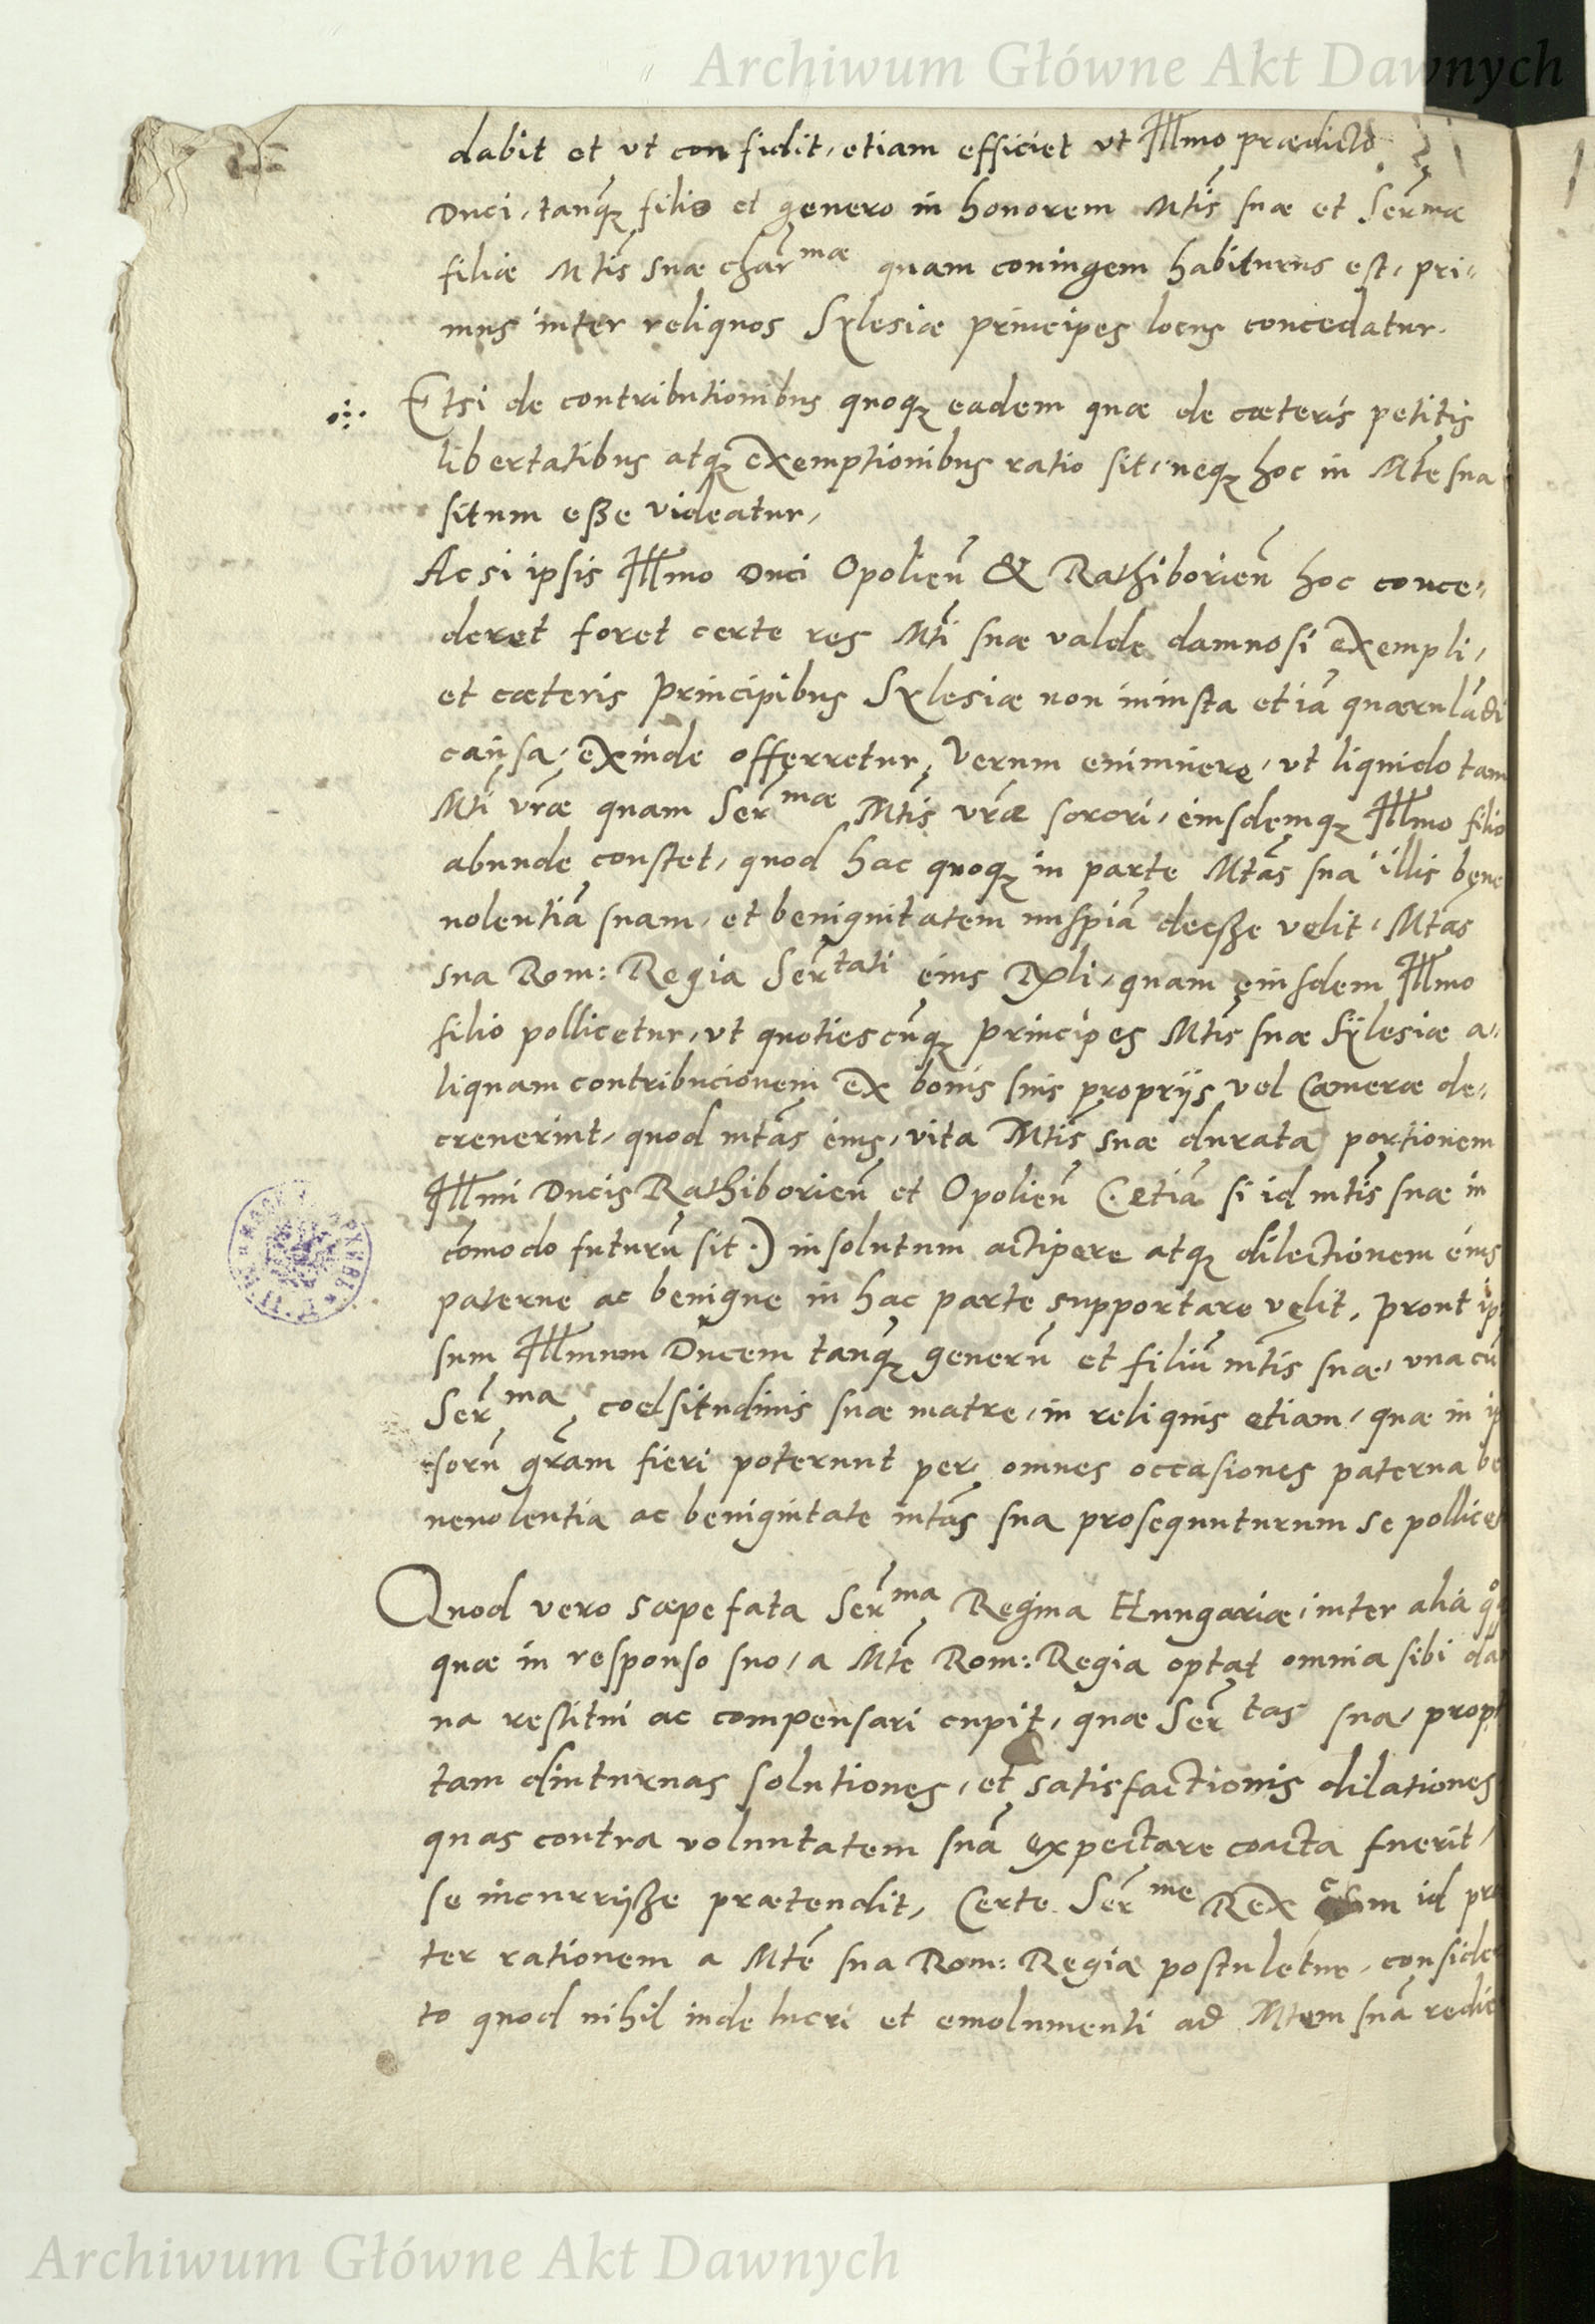 Archiwum Główne Akt Dawnych
dabit et ut confidit, etiam efficiet ut Illmo prædicto
Duci, tanq̃ filio et genero in honorem Mtis suæ et Sermæ
filiæ Mtis suæ charmæ quam coniugem habiturus est, pri-
mus inter reliquos Sylesiæ principes locus concedatur.
Etsi de contributionibus quoq̃ eadem quæ de cæteris petitis
libertatibus atq̃ exemptionibus ratio sit, neq̃ hoc in Mte sua
situm eße videatur,
Ac si ipsis Illmo Duci Opolień & Rathiborień hoc conce-
deret foret certe res Mti suæ valde damnosi exempli,
et cæteris Principibus Sylesiæ non iniusta etiā quærulādi
causa, exinde offerretur, Verum enimuero, ut liquido tam
Mti vræ quam Sermæ Mtis vræ sorori, eiusdemq̃ Illmo filio
abunde constet, quod hac quoq̃ in parte Mtas sua illis bene
uolentiā suam, et benignitatem nuspiā deeße velit, Mtas
sua Rom: Regia Sertati eius, quam eiusdem Illmo
filio pollicetur, ut quotiescūq̃ principes Mtis suæ Sÿlesiæ a-
liquam contribucionem ex bonis suis propriis vel Cameræ de-
creuerint, quod mtas eius, vita Mtis suæ durata portionem
Illmi Ducis Rathiborień et Opolień (etiā si id mtis suæ in
cōmodo futurū sit.) in solutum accipere atq̃ dilectionem eius
paterne ac benigne in hac parte supportare velit, prout ip
sum Illmum Ducem tanq̃ generū et filiū mtis suæ, una cū
Serma coelsitudinis suæ matre, in reliquis etiam, quæ in ip
sorū grām fieri poterunt per omnes occasiones paterna be
neuolentia ac benignitate mtas sua prosequuturum se pollice
Quod vero sæpefata Serma Regina Hungariæ, inter alia
quæ in responso suo, a Mte Rom: Regia optat omnia sibi da
na restitui ac compensari cupit, quæ Sertas sua, prop
tam diuturnas solutiones, et satisfactionis dilationes
quas contra voluntatem suā expectare coacta fuerit,
se incurriße prætendit, Certe Serme Rex cum id præ
ter rationem a Mte sua Rom: Regia postuletur, conside
to quod nihil inde lucri et emolumenti ad Mtem suā redie
Archiwum Główne Akt Dawnych